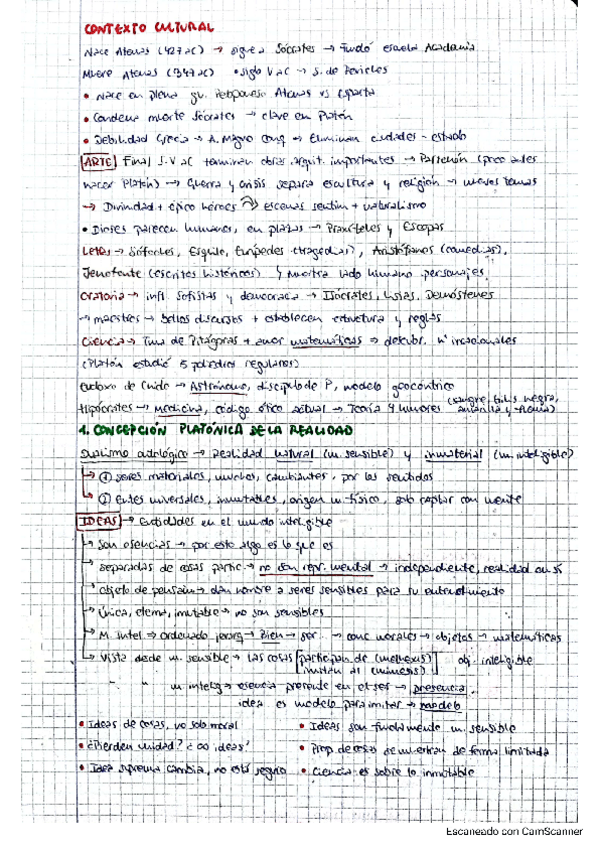 CONTEXTO CULTURAL
Nace Atenas (427 aC) → sigue a Sócrates → Fundó escuela Academia
Muere Atenas (347 aC) • Siglo V aC → S. de Pericles
• Nace en plena gu. Peloponeso Atenas vs Esparta
• Condena muerte Sócrates → clave en Platón
• Debilidad Grecia → A. Magno conq → Eliminan ciudades-estado
ARTE Final S. V aC terminan obras arquit. importantes → Partenón (poco antes
nacer Platón) → Guerra y crisis separa escultura y religión → nuevos temas
→ Divinidad + épico héroes escenas sentim + naturalismo
• Dioses parecen humanos, en plazas → Praxíteles y Escopas
Letras → Sófocles, Esquilo, Eurípedes (tragedias), Aristófanes (comedias),
Jenofonte (escritos históricos) y muestra lado humano personajes
Oratoria → infl. sofistas y democracia → Isócrates, Lisias, Demóstenes
→ maestros → bellos discursos + establecen estructura y reglas
Ciencia → Tma de Pitágoras + amor matemáticas ⇒ descubr. nº irracionales
(Platón estudió 5 poliedros regulares)
Eudoxo de Cnido → Astrónomo, discípulo de P, modelo geocéntrico
Hipócrates → Medicina, código ético actual → Teoría 4 humores (sangre, bilis negra, amarilla y flema)
1. CONCEPCIÓN PLATÓNICA DE LA REALIDAD
Dualismo ontológico → realidad natural (m. sensible) y inmaterial (m. inteligible)
→ ① seres materiales, muchos, cambiantes, por los sentidos
→ ② Entes universales, inmutables, origen m. físico, solo captar con mente
IDEAS → Entidades en el mundo inteligible
→ Son esencias → por esto algo es lo que es
→ separadas de cosas partic → no son repr. mental → independiente, realidad en sí
→ objeto de pensam → dan nombre a seres sensibles para su entendimiento
→ Única, eterna, inmutable → no son sensibles
→ M. Intel. → ordenado jerarq → Bien → ser → conc morales → objetos → matemáticas
→ Vista desde m. sensible → las cosas participan de (methexis) imitan al (mímesis) obj. inteligible
" " m intelig → esencia presente en el ser → presencia
idea es modelo para imitar → modelo
• Ideas de cosas, no solo moral
• Ideas son fundamento m. sensible
• ¿Pierden unidad? ¿∞ ideas?
• Prop de cosas se muestran de forma limitada
• Idea suprema cambia, no está seguro
• Ciencia es sobre lo inmutable
Escaneado con CamScanner